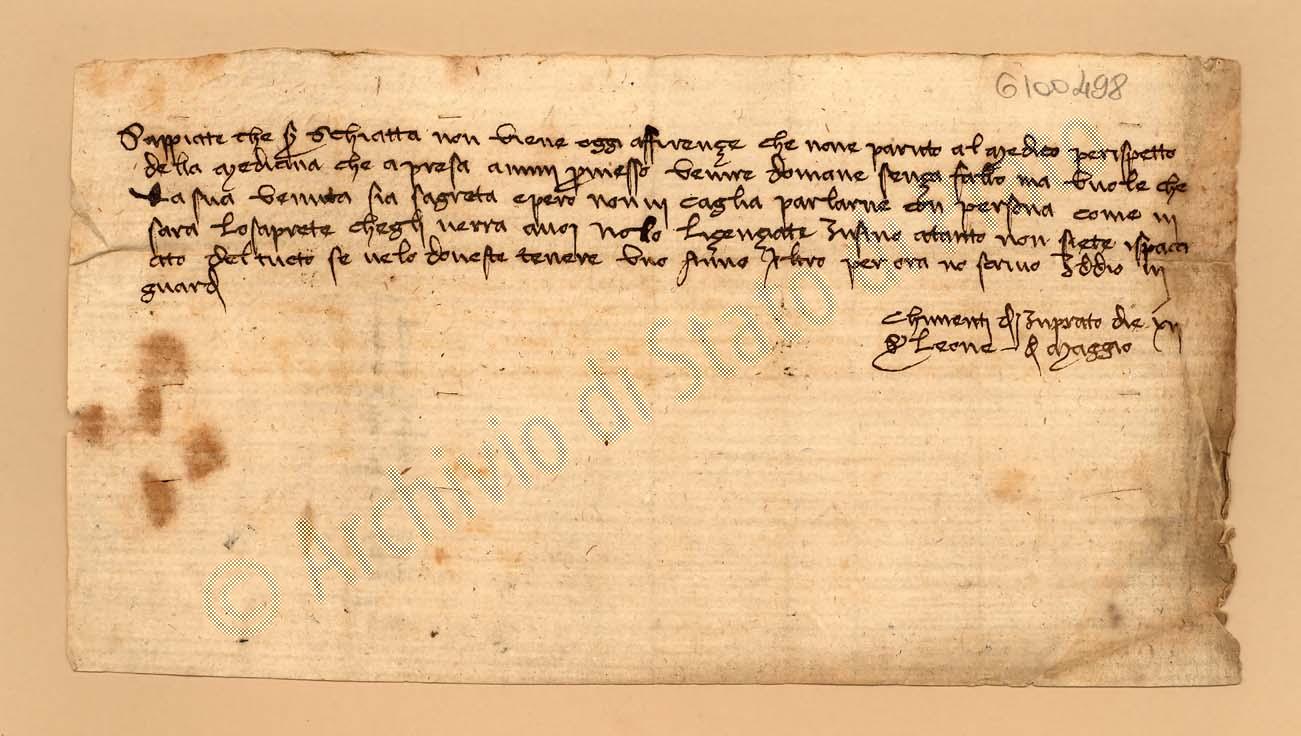 6100498
Sappiate che s Schiatta non viene oggi affirençe che none paruto al medico perispetto
della medicina che a presa a mmi promesso venire domane sença fallo ma vuole che
la sua venuta sia sagreta e pero non vi caglia parlarne con persona come vi
sara lo saprete chegli verra a voi nolo liçençiate Insino atanto non siete ispacci
ato del tucto se velo doveste tenere uno anno Altro per ora no scrivo Iddio vi
guard
Chimenti d Inprato die xii
Leone d maggio
© Archivio di Stato di Prato